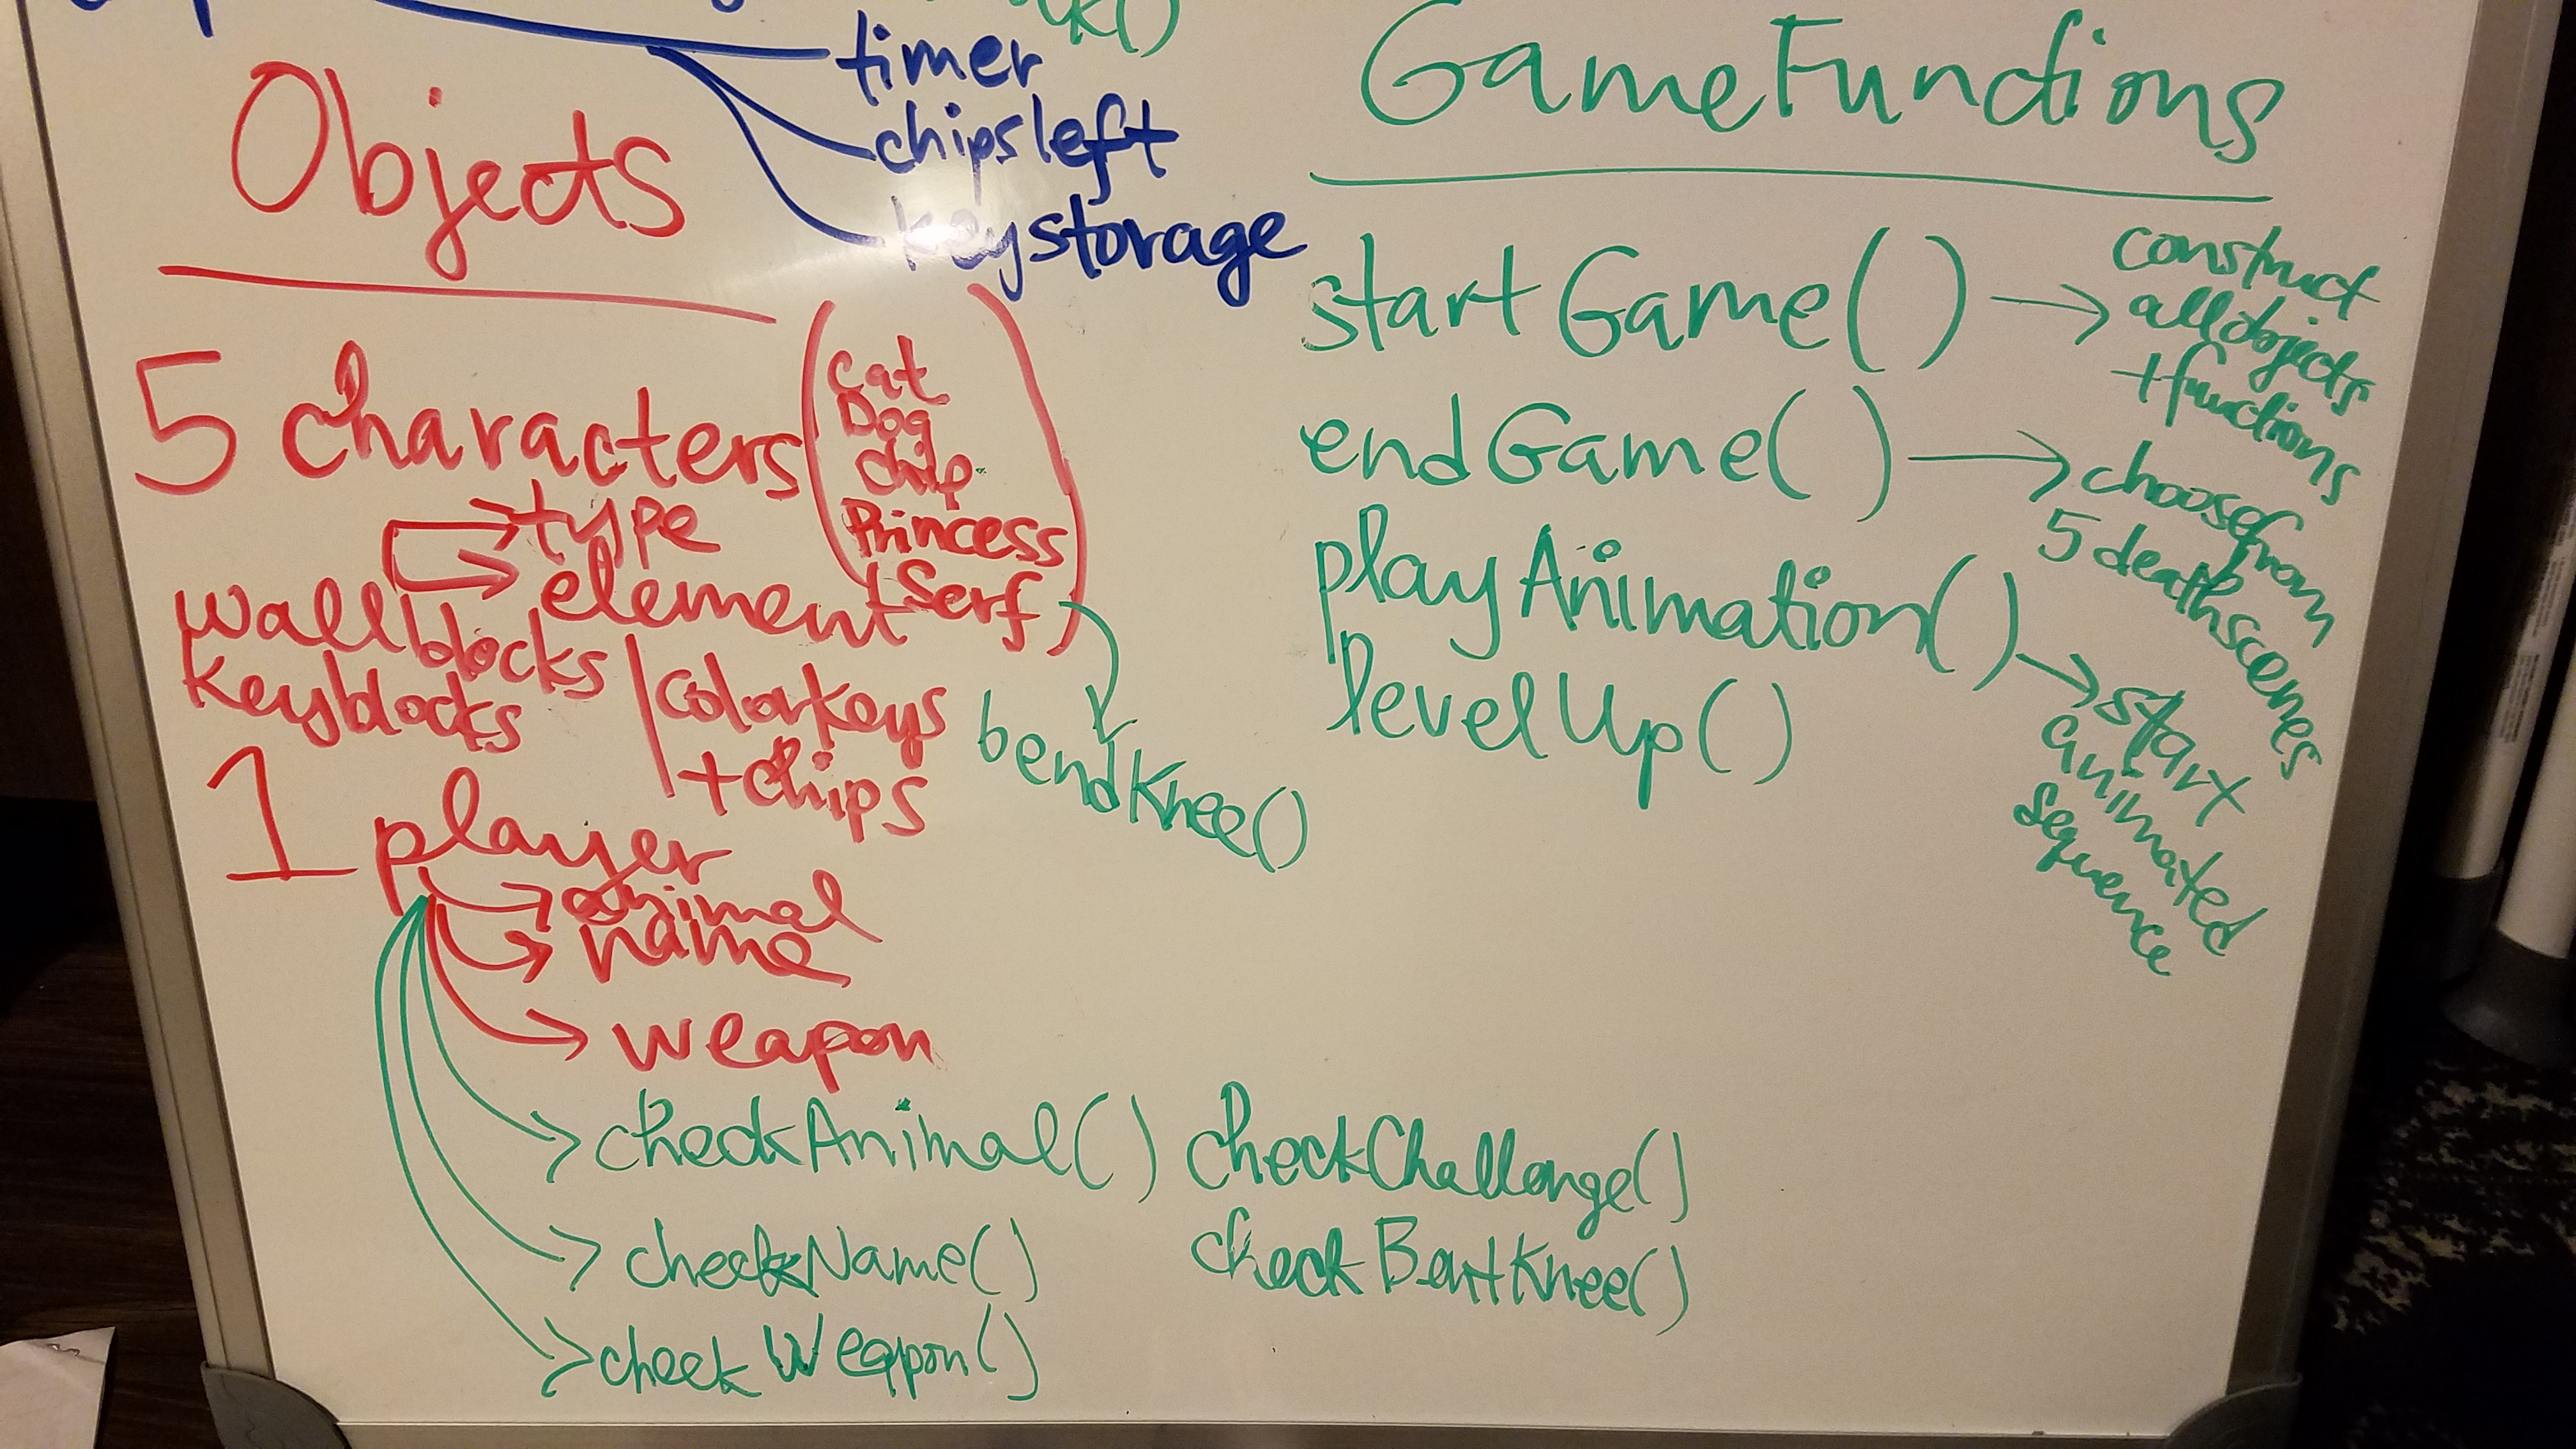 timer
chipsleft
keystorage
Objects
5 characters
(Cat
Dog
Chip
Princess
+Serf)
type
element
wallblocks
Keyblocks
colorkeys
+chips
bendKnee()
1 player
animal
name
weapon
checkAnimal()
checkName()
checkWeapon()
checkChallenge()
checkBentKnee()
GameFunctions
startGame()
construct
all objects
+functions
endGame()
choose from
5 death scenes
playAnimation()
start
animated
sequence
levelUp()